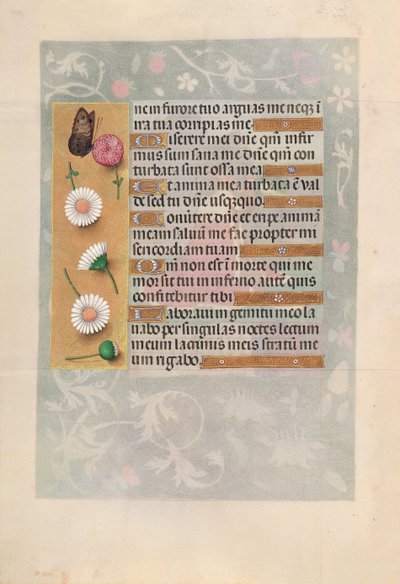 ne in furore tuo arguas me neq̄ ī
ira tua corripias me
Miserere mei dn̄e qm̄ infir
mus sum sana me dn̄e qm̄ con
turbata sunt ossa mea
Et anima mea turbata ē val
de sed tu dn̄e usq̄zquo
Conuertere dn̄e et eripe animā
meam saluū me fac propter mi
sericordiam tuam
Qm̄ non est ī morte qui me
mor sit tui in inferno autē quis
confitebitur tibi
Laboraui in gemitu meo la
uabo per singulas noctes lectum
meum lacrimis meis stratū me
um rigabo